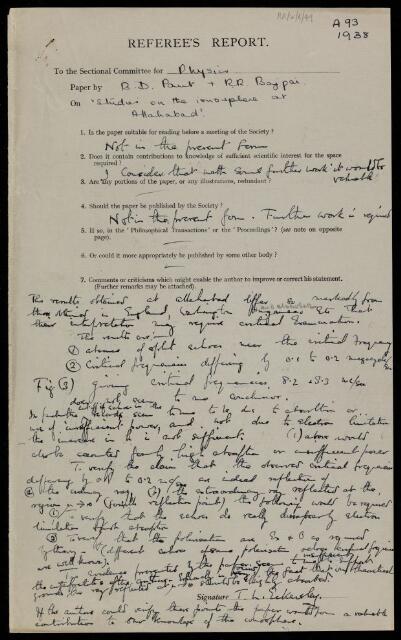 A 93
1938
REFEREE'S REPORT.
To the Sectional Committee for Physics
Paper by B. D. Pant + R.R. Bajpai
On 'Studies on the ionosphere at
Allahabad'.
1. Is the paper suitable for reading before a meeting of the Society?
Not in the present form
2. Does it contain contributions to knowledge of sufficient scientific interest for the space
required?
I consider that with some further work it would be
valuable
3. Are any portions of the paper, or any illustrations, redundant?
4. Should the paper be published by the Society?
Not in the present form. Further work is required
5. If so, in the 'Philosophical Transactions' or the 'Proceedings'? (see note on opposite
page).
6. Or could it more appropriately be published by some other body?
7. Comments or criticisms which might enable the author to improve or correct his statement.
(Further remarks may be attached).
The results obtained at Allahabad differ so markedly from
those obtained in England, Washington etc that
their interpretation may require critical examination.
The results are
① absence of split echoes near the critical frequency
② Critical frequencies differing by 0.1 to 0.2 megacycles
Fig (3) giving critical frequencies 8.2 + 8.3 mc/sec
does not seem to me conclusive.
to me to be due to absorption or
use of insufficient power, and not due to electron limitation
the increase in h' is not sufficient. (1) above would
also be accounted for by high absorption or insufficient power
To verify the claim that the observed critical frequencies
differing by 0.1 to 0.2 mc/sec are indeed reflection of
the ordinary ray (2) the extraordinary ray reflected at the
region the following would be required
① To verify that the echoes do really disappear by electron
limitation + not absorption
② To verify that the polarisations are
the paper
the fact that on theoretical
grounds the ray reflected at should be highly absorbed.
Signature T. L. Eckersley
If the authors could verify these points the paper would form a valuable
contribution to our knowledge of the ionosphere.